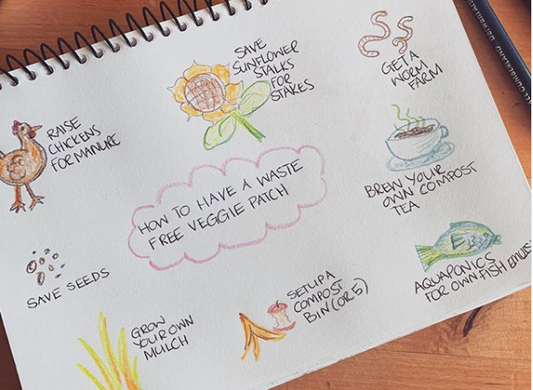 SAVE
SUNFLOWER
STALKS
FOR
STAKES
GET A
WORM
FARM
RAISE
CHICKENS
FOR MANURE
HOW TO HAVE A WASTE
FREE VEGGIE PATCH
BREW YOUR
OWN COMPOST
TEA
SAVE SEEDS
AQUAPONICS
FOR OWN FISH
GROW
YOUR OWN
MULCH
SET UP A
COMPOST
BIN (OR 5)